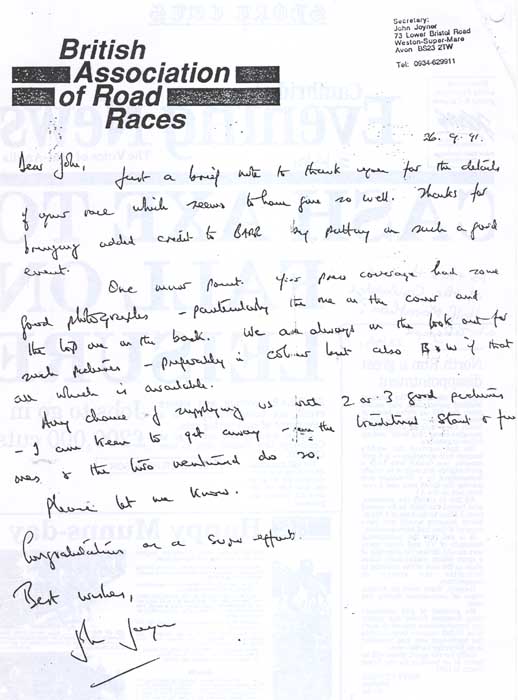 British
Association
of Road
Races
Secretary:
John Joyner
73 Lower Bristol Road
Weston-Super-Mare
Avon BS23 2TW
Tel: 0934-629911
26.9.91.
Dear John,
Just a brief note to thank you for the details
of your race which seems to have gone so well. Thanks for
bringing added credit to BARR by putting on such a good
event.
One minor point. Your press coverage had some
good photographs - particularly the one on the cover and
the top one on the back. We are always on the look out for
such pictures - preferably in colour but also B & W if that
all which is available.
Any chance of supplying us with 2 or 3 good pictures
- I am keen to get away from the traditional start & fun
ones & the two mentioned do so.
Please let me know.
Congratulations on a super effort.
Best wishes,
John Joyner